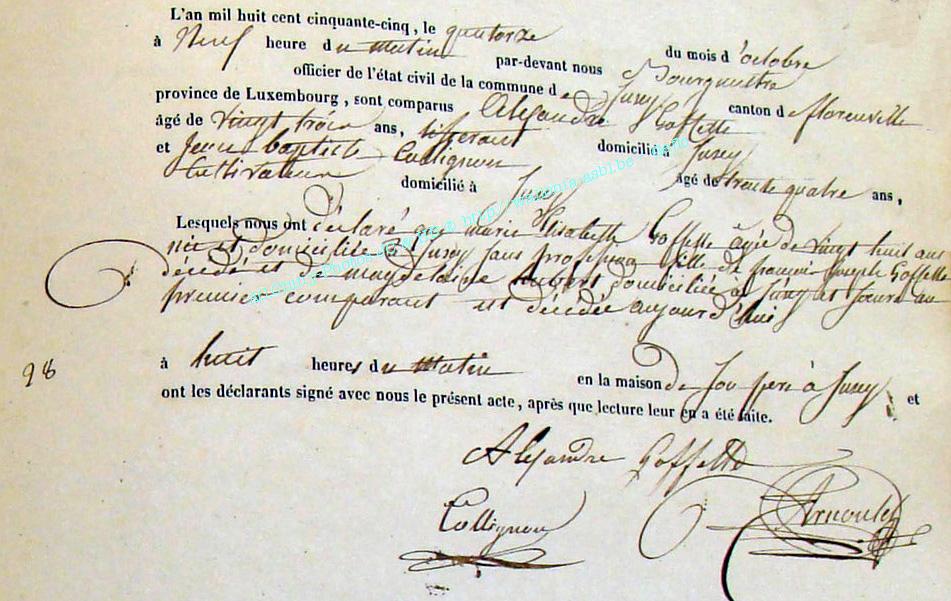 L'an mil huit cent cinquante-cinq, le quatorze
du mois d'octobre
à Neuf heure du matin par-devant nous Bourgmestre
officier de l'état civil de la commune de Jusey canton de florenville
province de Luxembourg, sont comparus Alexandre Goffette
âgé de vingt trois ans, domicilié à Jusey
et Jean baptiste Collignon âgé de trente quatre ans,
Cultivateur domicilié à Jusey
Lesquels nous ont déclaré que marie Elisabeth Goffette âgée de vingt huit ans
née et domiciliée à Jusey sans profession fille de françois joseph Goffette
décédé et de magdelaine hubert domiciliée à Jusey et soeur au
premier comparant est décédée aujourd'hui
98
à huit heures du matin en la maison de son père à Jusey et
ont les déclarants signé avec nous le présent acte, après que lecture leur en a été faite.
Alexandre Goffette
Collignon